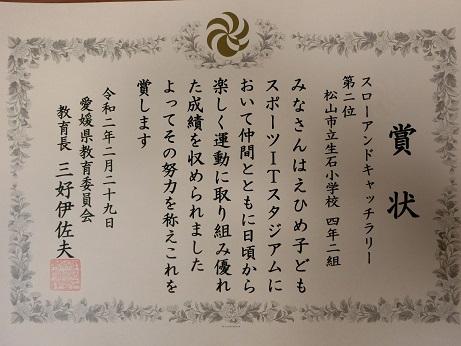 賞状
スローアンドキャッチラリー
第二位
松山市立生石小学校 四年二組
みなさんはえひめ子ども
スポーツITスタジアムに
おいて仲間とともに日頃から
楽しく運動に取り組み優れ
た成績を収められました
よってその努力を称えこれを
賞します
令和二年二月二十九日
愛媛県教育委員会
教育長 三好伊佐夫